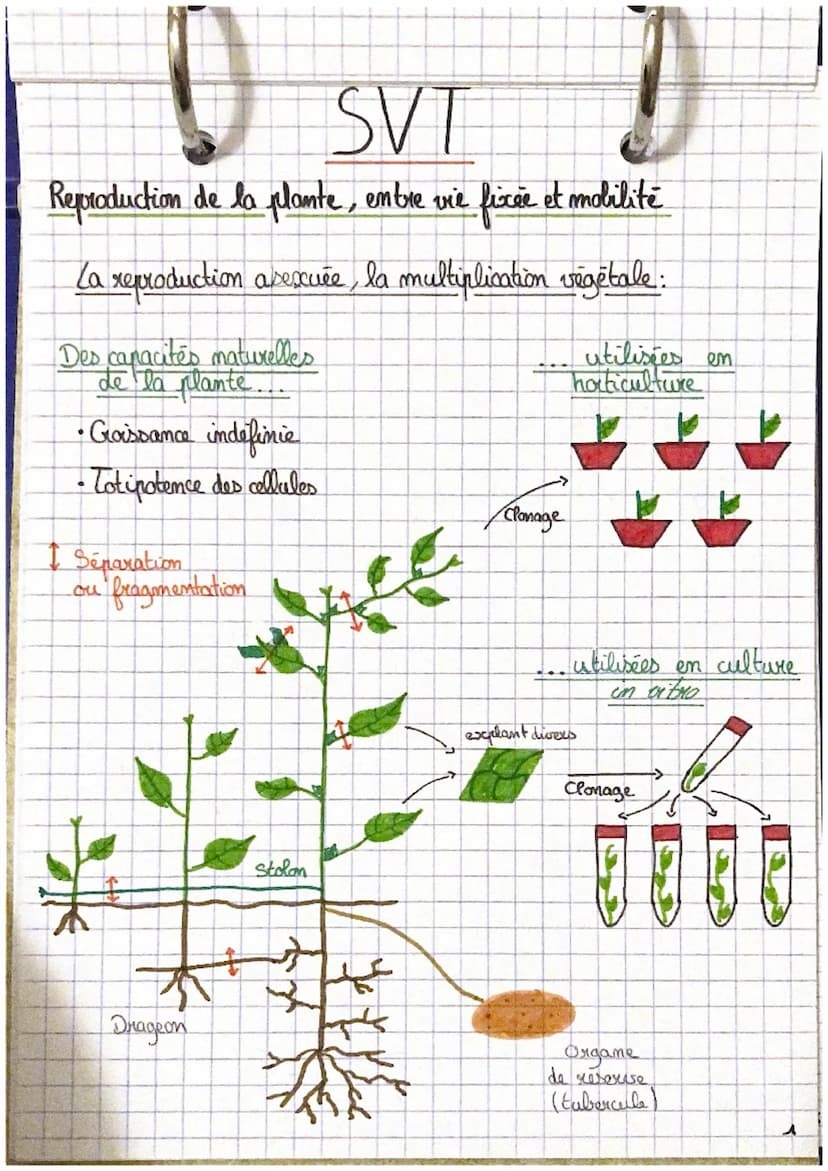 SVT
Reproduction de la plante, entre vie fixée et mobilité
La reproduction asexuée, la multiplication végétale :
Des capacités naturelles
de la plante...
• Croissance indéfinie
• Totipotence des cellules
↕ Séparation
ou fragmentation
... utilisées en
horticulture
Clonage
... utilisées en culture
in vitro
explant divers
Clonage
Stolon
Drageon
Organe
de réserve
(tubercule)
1